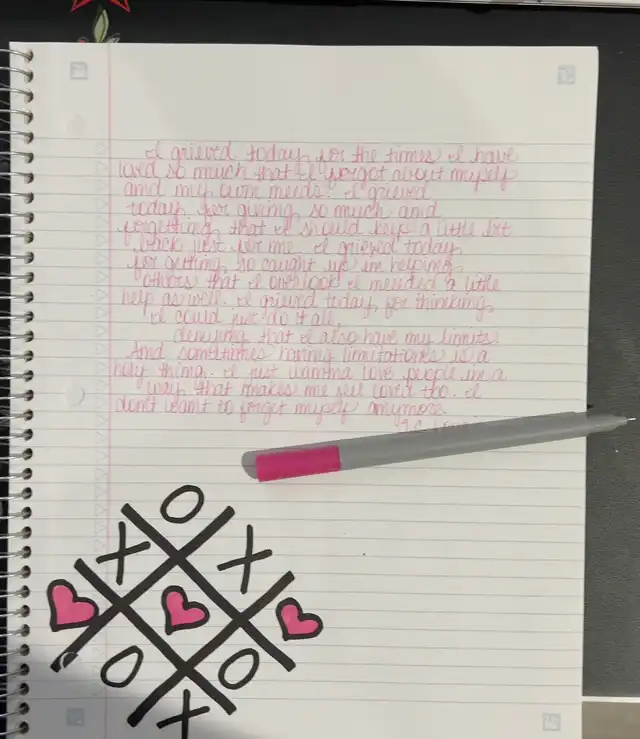 I grieved today, for the times I have
loved so much that I forgot about myself
and my own needs. I grieved
today, for giving so much and
forgetting that I should keep a little bit
back just for me. I grieved today,
for getting so caught up in helping
others that I overlook I needed a little
help as well. I grieved today, for thinking,
I could just do it all,
denying that I also have my limits.
And sometimes having limitations is a
holy thing. I just wantna love people in a
way that makes me feel loved too. I
don't want to forget myself anymore
O
X X
O O
X